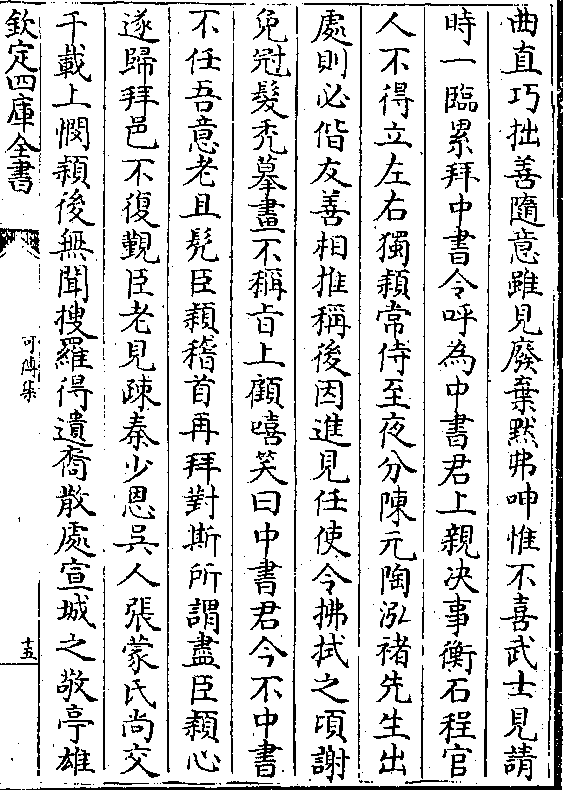 曲直巧拙善隨意雖見廢棄黙弗呻惟不喜武士見請
時一臨累拜中書令呼為中書君上親決事衡石程官
人不得立左右獨頴常侍至夜分陳元陶泓褚先生出
處則必偕友善相推稱後因進見任使令拂拭之頃謝
免冠髮禿摹畫不稱旨上顧嘻笑曰中書君今不中書
不任吾意老且髠臣頴稽首再拜對斯所謂盡臣頴心
遂歸拜邑不復覲臣老見疎秦少恩吳人張蒙氏尚交
千載上憫頴後無聞搜羅得遺裔散處宣城之敬亭雄
欽定四庫全書
可傳集
十五